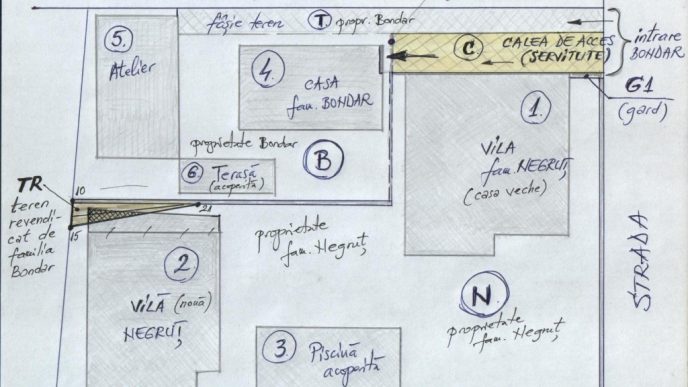 5.
Atelier
fâșie teren
T
propr. Bondar
C
CALEA DE ACCES
(SERVITUTE)
intrare
BONDAR
4.
CASA
fam. BONDAR
G1
(gard)
1.
VILA
fam. NEGRUȚ
(casa veche)
proprietate Bondar
B
6.
Terasă
(acoperită)
TR
teren
revendi-
cat de
familia
Bondar
10
15
21
proprietate
fam. Negruț
2
VILĂ (nouă)
NEGRUȚ
N
proprietate
fam. Negruț
3.
Piscină
acoperită
STRADA